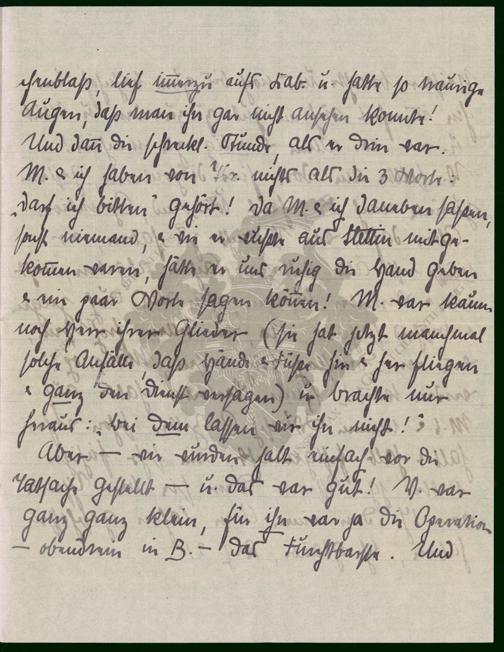 chenblaß, lief immerzu aufs Kab. u. hatte so traurige
Augen, daß man ihn gar nicht ansehen konnte!
Und dann die schreckl. Stunde, als er drin war.
M. & ich haben von nichts als die 3 Worte:
"darf ich bitten" gehört! Da M. & ich daneben saßen,
sonst niemand, & wir er wußte aus Stettin mitge-
kommen waren, hätte er uns ruhig die Hand geben
& ein paar Worte sagen können! M. war kaum
noch Herr ihrer Glieder (sie hat jetzt manchmal
solche Anfälle daß Hände & Füße hin & her fliegen
& ganz den Dienst versagen) u. brachte nur
heraus: "bei dem lassen wir ihn nicht!"
Aber — wir wurden halt einfach vor die
Tatsache gestellt — u. das war gut! V. war
ganz ganz klein, für ihn war ja die Operation
— obendrein in B. — das Furchtbarste. Und